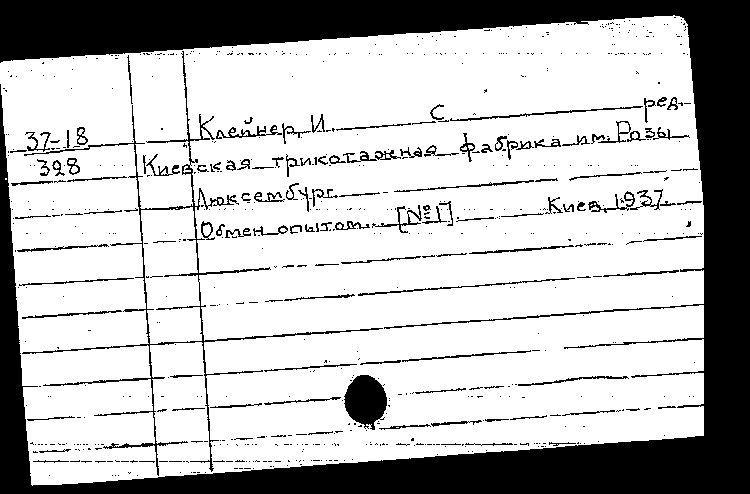 37-18
328
Клейнер, И. С. ред.
Киевская трикотажная фабрика им. Розы
Люксембург.
Обмен опытом... [№1]. Киев, 1937.